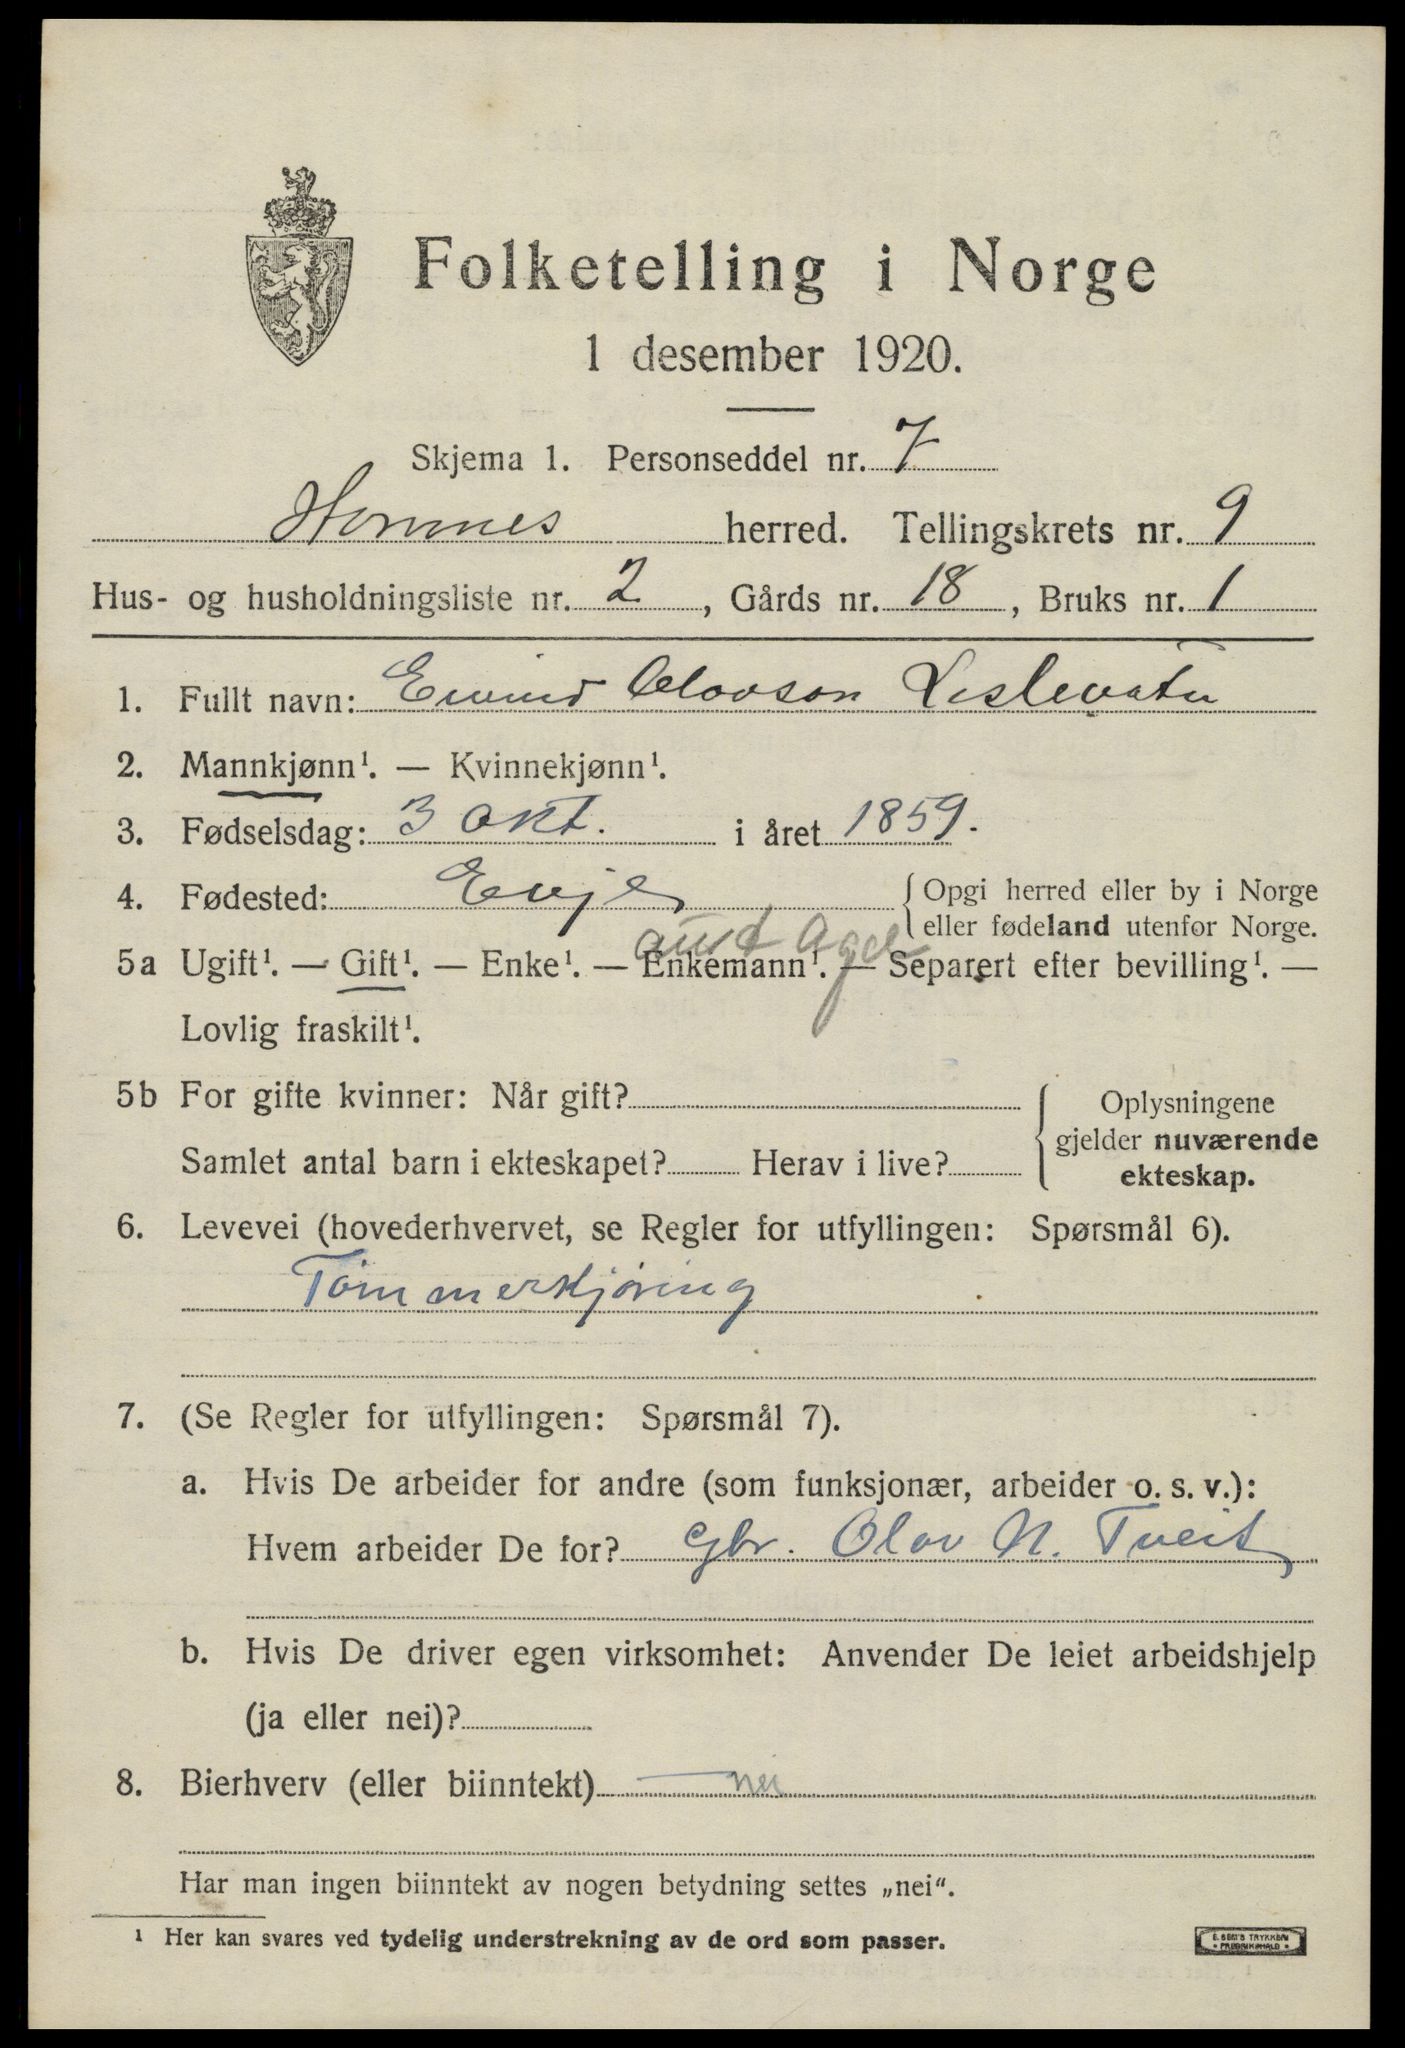 Folketelling i Norge
1 desember 1920.
Skjema 1. Personseddel nr. 7
Hornnes herred. Tellingskrets nr. 9
Hus- og husholdningsliste nr. 2, Gårds nr. 18, Bruks nr. 1
1. Fullt navn: Eivind Olovson Lislevatn
2. Mannkjønn¹. — Kvinnekjønn¹.
3. Fødselsdag: 3 okt. i året 1859.
4. Fødested: Evje { Opgi herred eller by i Norge
eller fødeland utenfor Norge.
aust Agder
5a Ugift¹. — Gift¹. — Enke¹. — Enkemann¹. — Separert efter bevilling¹. —
Lovlig fraskilt¹.
5b For gifte kvinner: Når gift? { Oplysningene
gjelder nuværende
Samlet antal barn i ekteskapet? Herav i live?
ekteskap.
6. Levevei (hovederhvervet, se Regler for utfyllingen: Spørsmål 6).
Tømmerkjøring
7. (Se Regler for utfyllingen: Spørsmål 7).
a. Hvis De arbeider for andre (som funksjonær, arbeider o. s. v.):
Hvem arbeider De for? gbr. Olov N. Tveit
b. Hvis De driver egen virksomhet: Anvender De leiet arbeidshjelp
(ja eller nei)?
8. Bierhverv (eller biinntekt) — nei
Har man ingen biinntekt av nogen betydning settes „nei“.
¹ Her kan svares ved tydelig understrekning av de ord som passer.
E. SEM'S TRYKKERI
• FREDRIKSHALD •